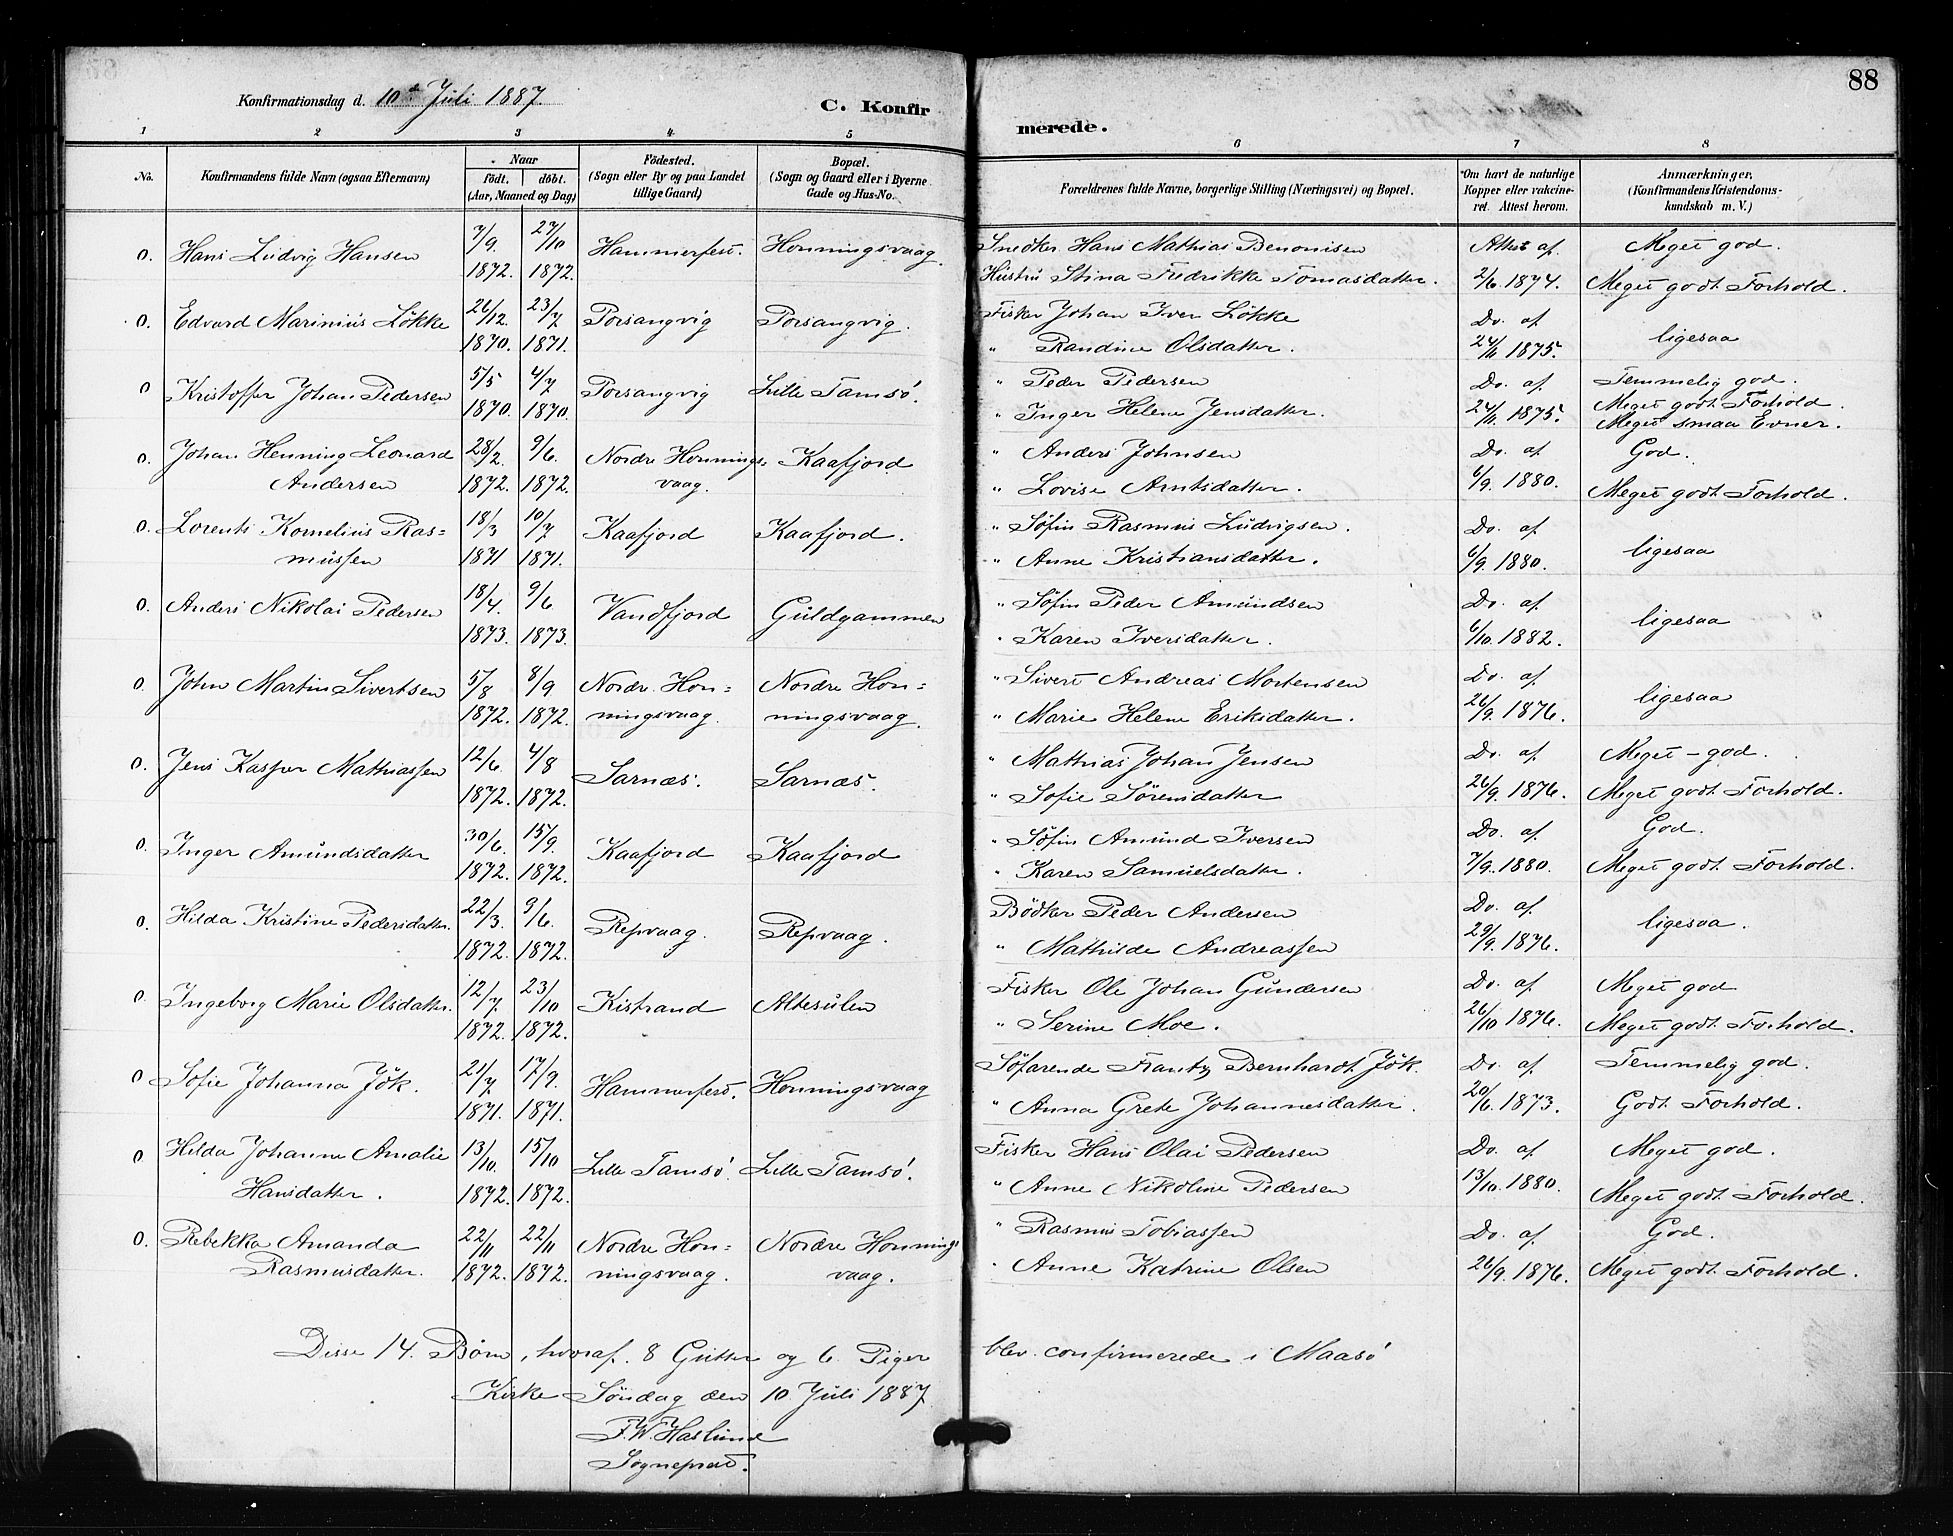 88
Konfirmationsdag d. 10de Juli 1887.
C. Konfir
merede.
1 2 3 4 5 6 7 8
No.
Konfirmandens fulde Navn (ogsaa Efternavn)
Naar
födt. döbt.
(Aar, Maaned og Dag)
Födested.
(Sogn eller By og paa Landet
tillige Gaard)
Bopæl.
(Sogn og Gaard eller i Byerne
Gade og Hus-No.
Forældrenes fulde Navne, borgerlige Stilling (Næringsvei) og Bopæl.
Om havt de naturlige
Kopper eller vakcine-
ret. Attest herom.
Anmærkninger,
(Konfirmandens Kristendoms-
kundskab m. V.)
0. Hans Ludvig Hansen 7/9 1872. 27/10 1872. Hammerfest. Honningsvaag. Snedker Hans Mathias Benonisen Attest af Meget god.
Hustru Stina Fredrikke Tomasdatter. 2/6 1874. Meget godt Forhold.
0. Edvard Marinius Løkke 26/12 1870. 23/7 1871. Porsangvig Porsangvig. Fisker Johan Iver Løkke Do. af ligesaa
" Randine Olsdatter. 24/11 1875.
0 Kristoffer Johan Pedersen 5/5 1870. 4/7 1870. Porsangvig Lille Tamsø. " Peder Pedersen Do. af Temmelig god.
" Inger Helene Jensdatter. 24/11 1875. Meget godt Forhold.
Meget smaa Evner.
0. Johan Henning Leonard 28/2 1872. 9/6 1872. Nordre Honnings- Kaafjord " Anders Johnsen Do. af God.
Andersen vaag. " Lovise Arntsdatter. 6/9 1880. Meget godt Forhold.
0. Lorents Kornelius Ras= 18/3 1871 10/7 1871. Kaafjord Kaafjord. " Søfin Rasmus Ludvigsen. Do. af ligesaa
mussen " Anne Kristiansdatter. 6/9 1880.
0. Anders Nikolai Pedersen 18/4 1873. 9/6 1873. Vandfjord Guldgammen " Søfin Peder Amundsen Do. af ligesaa
" Karen Iversdatter. 6/10 1882.
0. John Martin Sivertsen 5/8 1872. 8/9 1872. Nordre Hon= Nordre Hon= " Sivert Andreas Mortensen Do. af ligesaa
ningsvaag. ningsvaag. " Marie Helene Eriksdatter. 26/9 1876.
0. Jens Kasper Mathiassen 12/6 1872. 4/8 1872. Sarnæs. Sarnæs. " Mathias Johan Jensen Do. af Meget god.
" Sofie Sørensdatter 26/9 1876. Meget godt Forhold.
0. Inger Amundsdatter 30/6 1872. 15/9 1872. Kaafjord Kaafjord " Søfin Amund Iversen Do. af God.
" Karen Samuelsdatter. 7/9 1880. Meget godt Forhold.
0. Hilda Kristine Pedersdatter. 22/3 1872. 9/6 1872. Repvaag. Repvaag. Bødker Peder Andersen Do. af ligesaa.
" Mathilde Andreassen 29/9 1876.
0. Ingeborg Marie Olsdatter. 12/7 1872. 23/10 1872. Kistrand Altesulen Fisker Ole Johan Gundersen Do. af Meget god
" Serine Moe. 26/10 1876. Meget godt Forhold.
0 Sofie Johanna Jøk. 21/7 1871. 17/9 1871. Hammerfest. Honningsvaag Søfarende Frantz Bernhardt Jøk. Do. af Temmelig god.
" Anna Grete Johannesdatter. 20/6 1873. Godt Forhold.
0 Hilda Johanne Amalie 13/10 1872. 15/10 1872. Lille Tamsø. Lille Tamsø. Fisker Hans Olai Pedersen Do. af Meget god.
Hansdatter. " Anne Nikoline Pedersen 13/10 1880. Meget godt Forhold.
0. Rebekka Amanda 22/11 1872. 22/11 1872. Nordre Hon= Nordre Honnings " Rasmus Tobiassen Do. af God.
Rasmusdatter. ningsvaag. vaag. " Anne Katrine Olsen 26/9 1876. Meget godt Forhold.
Disse 14 Børn, hvoraf 8 Gutter og 6 Piger blev confirmerede i Maasø
Kirke Søndag den 10 Juli 1887
F.W. Haslund
Sogneprest.